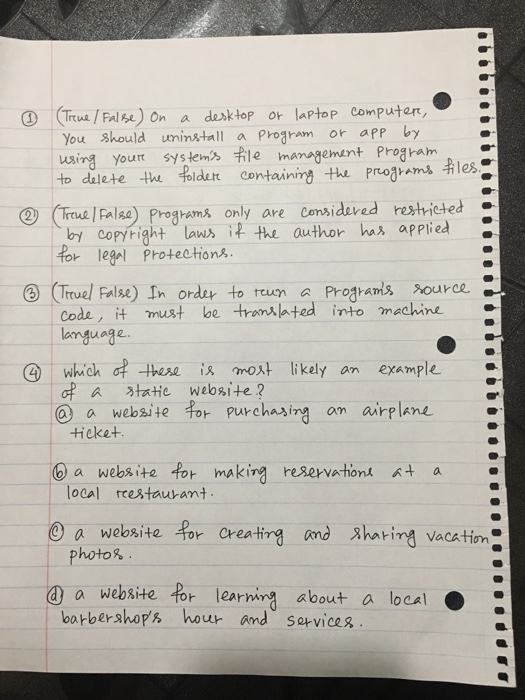 ① (True/False) On a desktop or laptop computer,
You should uninstall a program or app by
using your system's file management program
to delete the folder containing the programs files.
② (True/False) Programs only are considered restricted
by copyright laws if the author has applied
for legal protections.
③ (True/False) In order to run a program's source
code, it must be translated into machine
language.
④ which of these is most likely an example
of a static website?
ⓐ a website for purchasing an airplane
ticket.
ⓑ a website for making reservations at a
local restaurant.
ⓒ a website for creating and sharing vacation
photos.
ⓓ a website for learning about a local
barbershop's hour and services.